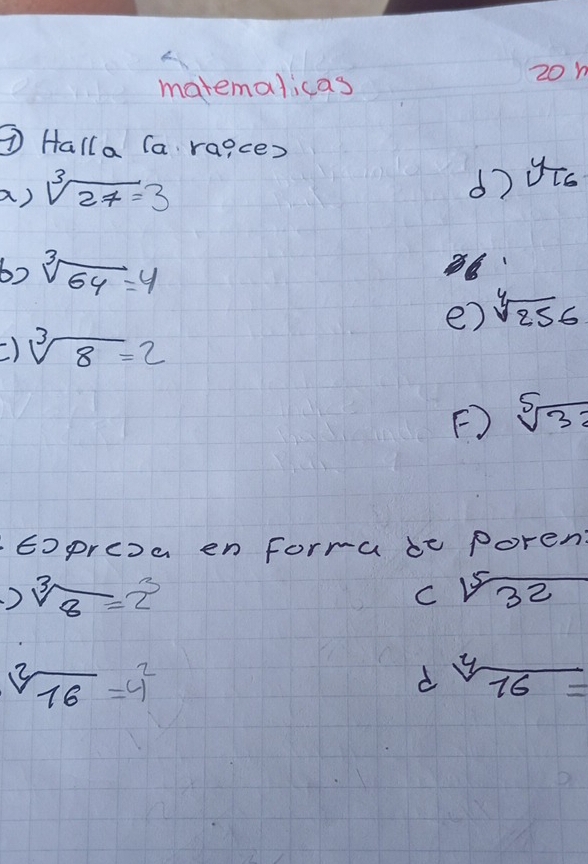 matematicas 20
① Halla la raices
a) ∛27 = 3 d) ∜16
b) ∛64 = 4
e) ∜256
c) ∛8 = 2
F) ⁵√32
Expresa en forma de Poten
∛8 = 2³ c ⁵√32
²√16 = 4² d ∜16 =